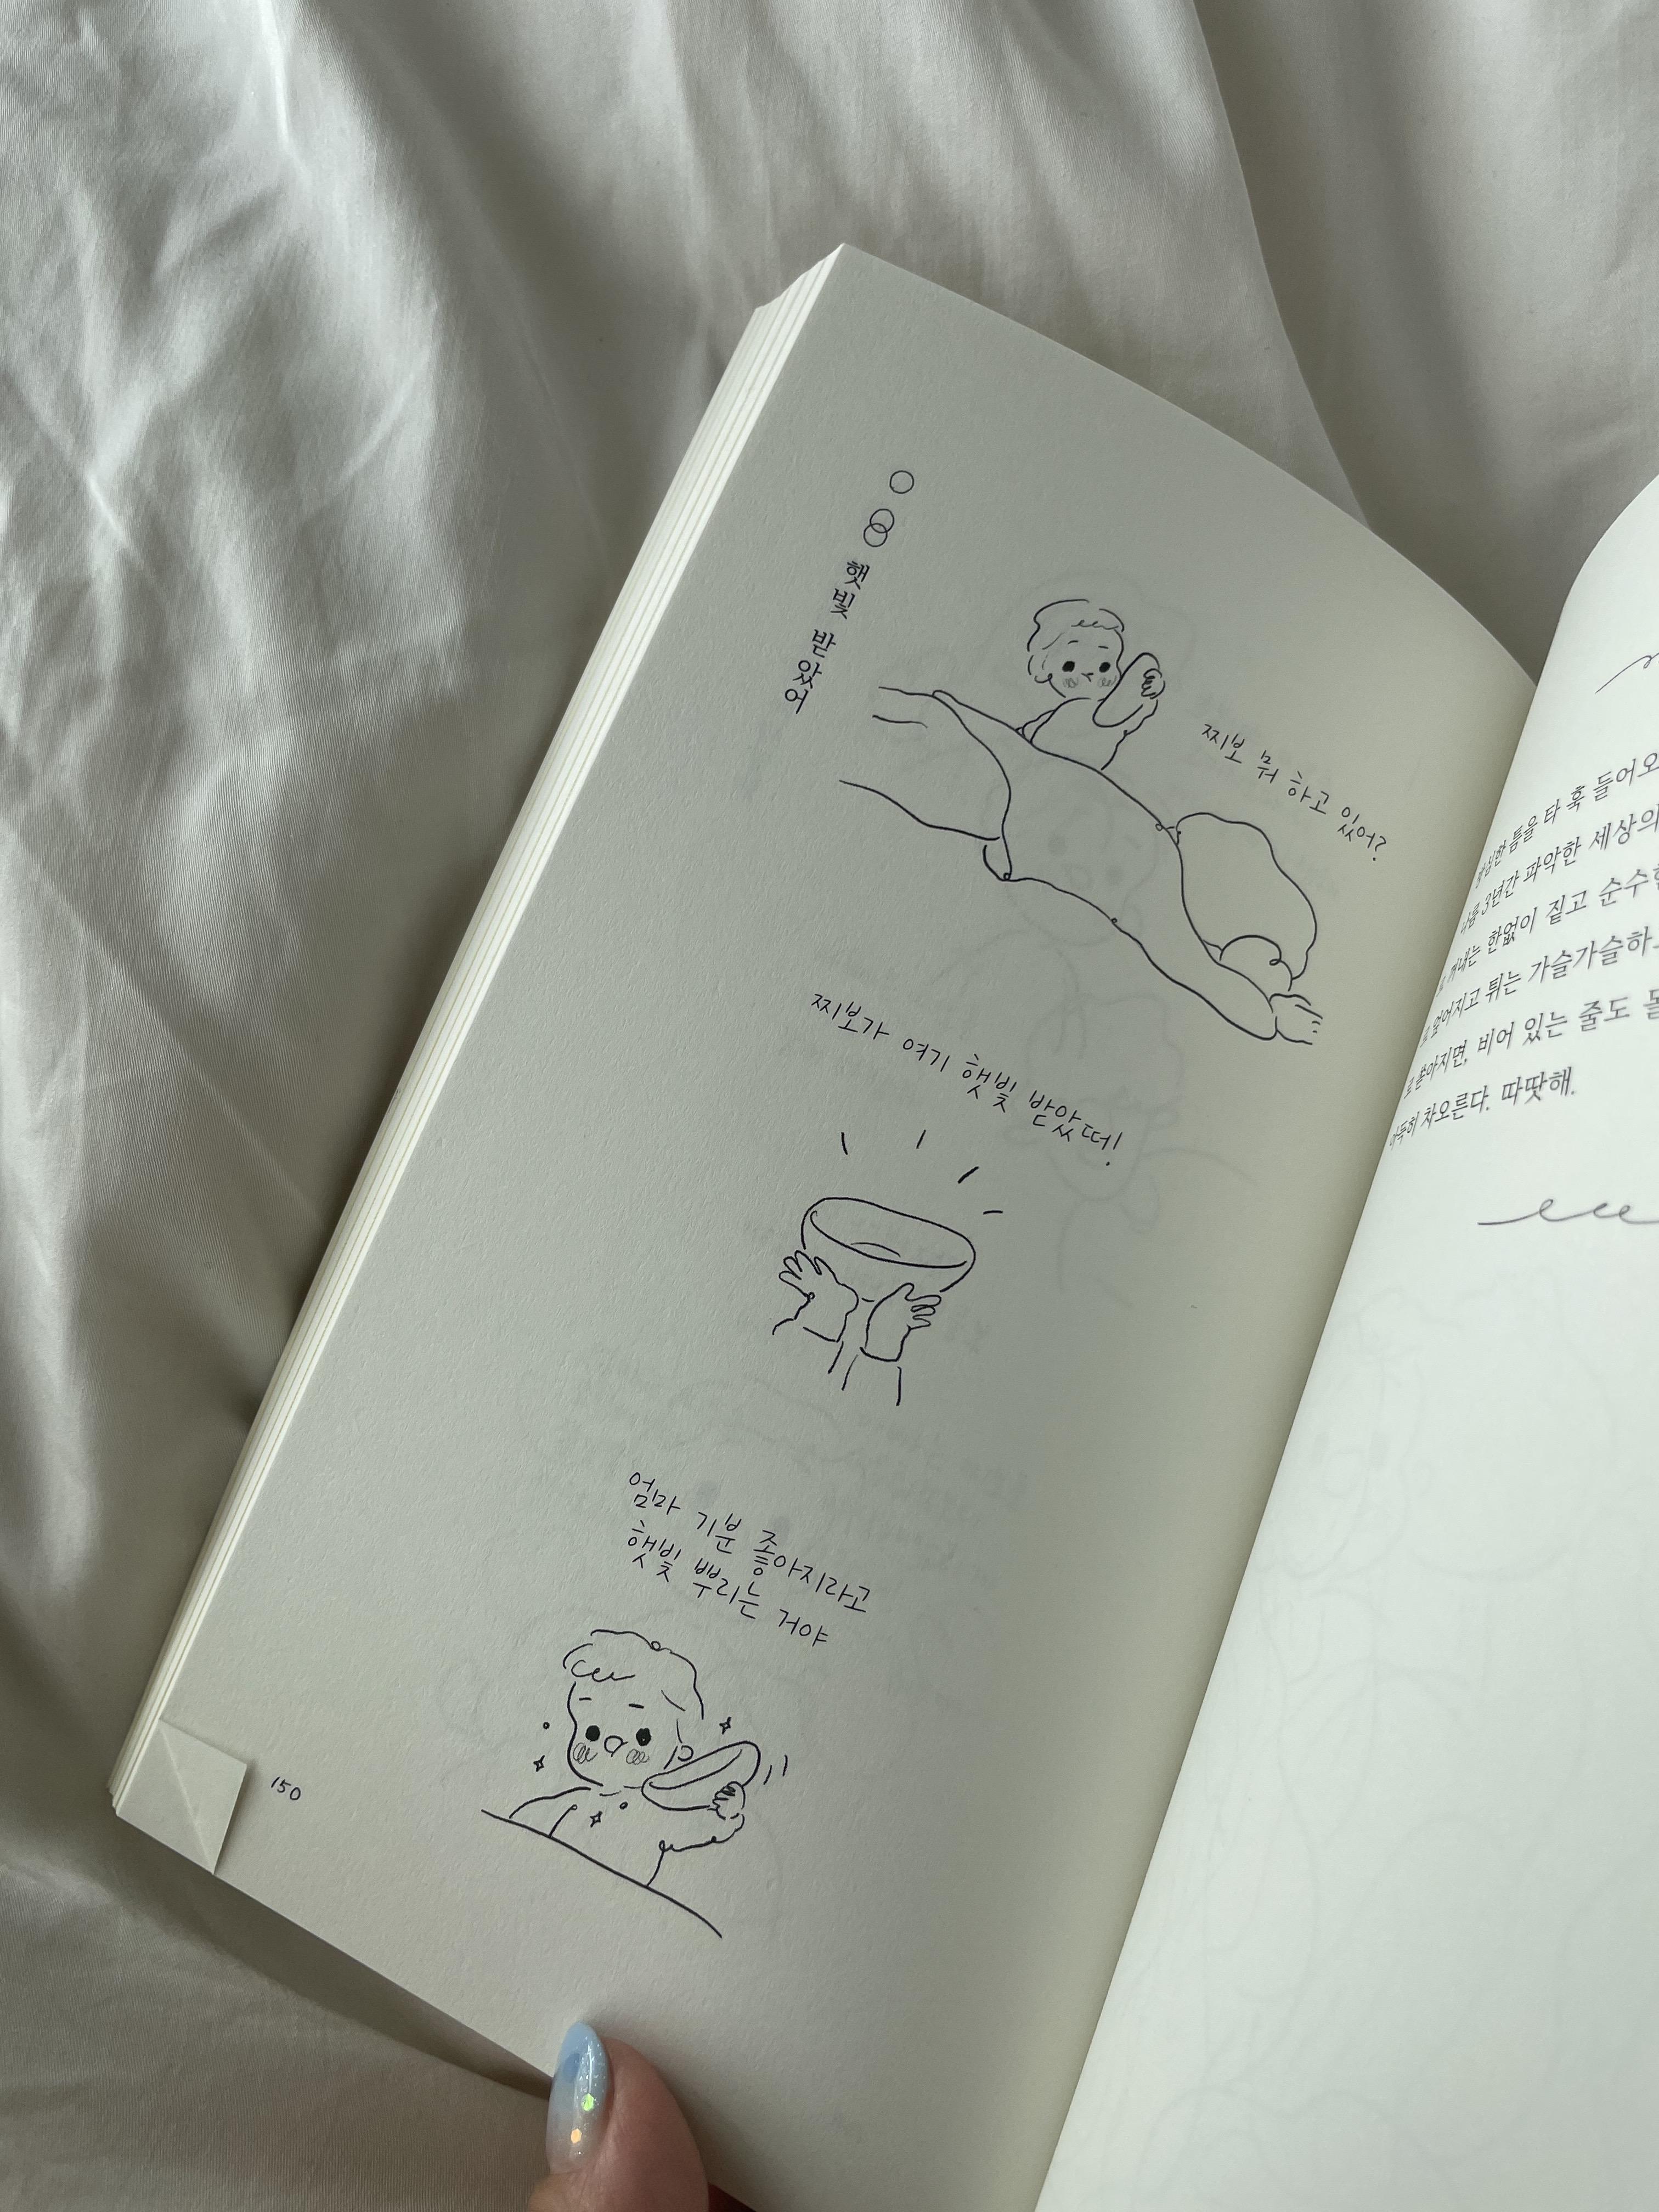 햇빛 받았어
찌보 뭐 하고 있어?
찌보가 여기 햇빛 받았떠!
엄마 기분 좋아지라고
햇빛 뿌리는 거야
150
틈을 타 훅 들어오
3년간 파악한 세상의
꺼내는 한없이 짙고 순수한
엎어지고 튀는 가슬가슬하
쏟아지면, 비어 있는 줄도 몰
차오른다. 따땃해.